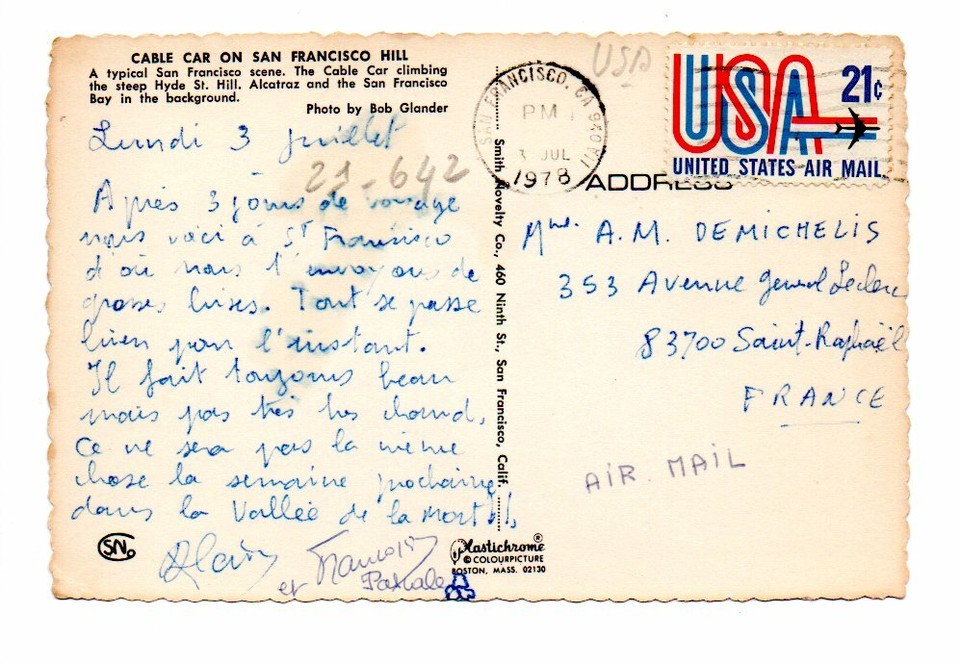 CABLE CAR ON SAN FRANCISCO HILL
A typical San Francisco scene. The Cable Car climbing
the steep Hyde St. Hill. Alcatraz and the San Francisco
Bay in the background.
Photo by Bob Glander
Lundi 3 juillet
21-642
Après 3 jours de voyage
nous voici à St Francisco
d'où nous t'envoyons de
grosses bises. Tout se passe
bien pour l'instant.
Il fait toujours beau
mais pas très très chaud.
Ce ne sera pas la même
chose la semaine prochaine
dans la Vallée de la Mort!!
Alain
et Francois
Pascale
SN
Smith Novelty Co., 460 Ninth St., San Francisco, Calif.
Plastichrome ®
© COLOURPICTURE
BOSTON, MASS. 02130
USA
SAN FRANCISCO, CA
PM
3 JUL
1978
USA 21c
UNITED STATES AIR MAIL
ADDRESS
A.M. DEMICHELIS
353 Avenue general Leclerc
83700 Saint-Raphaël
FRANCE
AIR MAIL